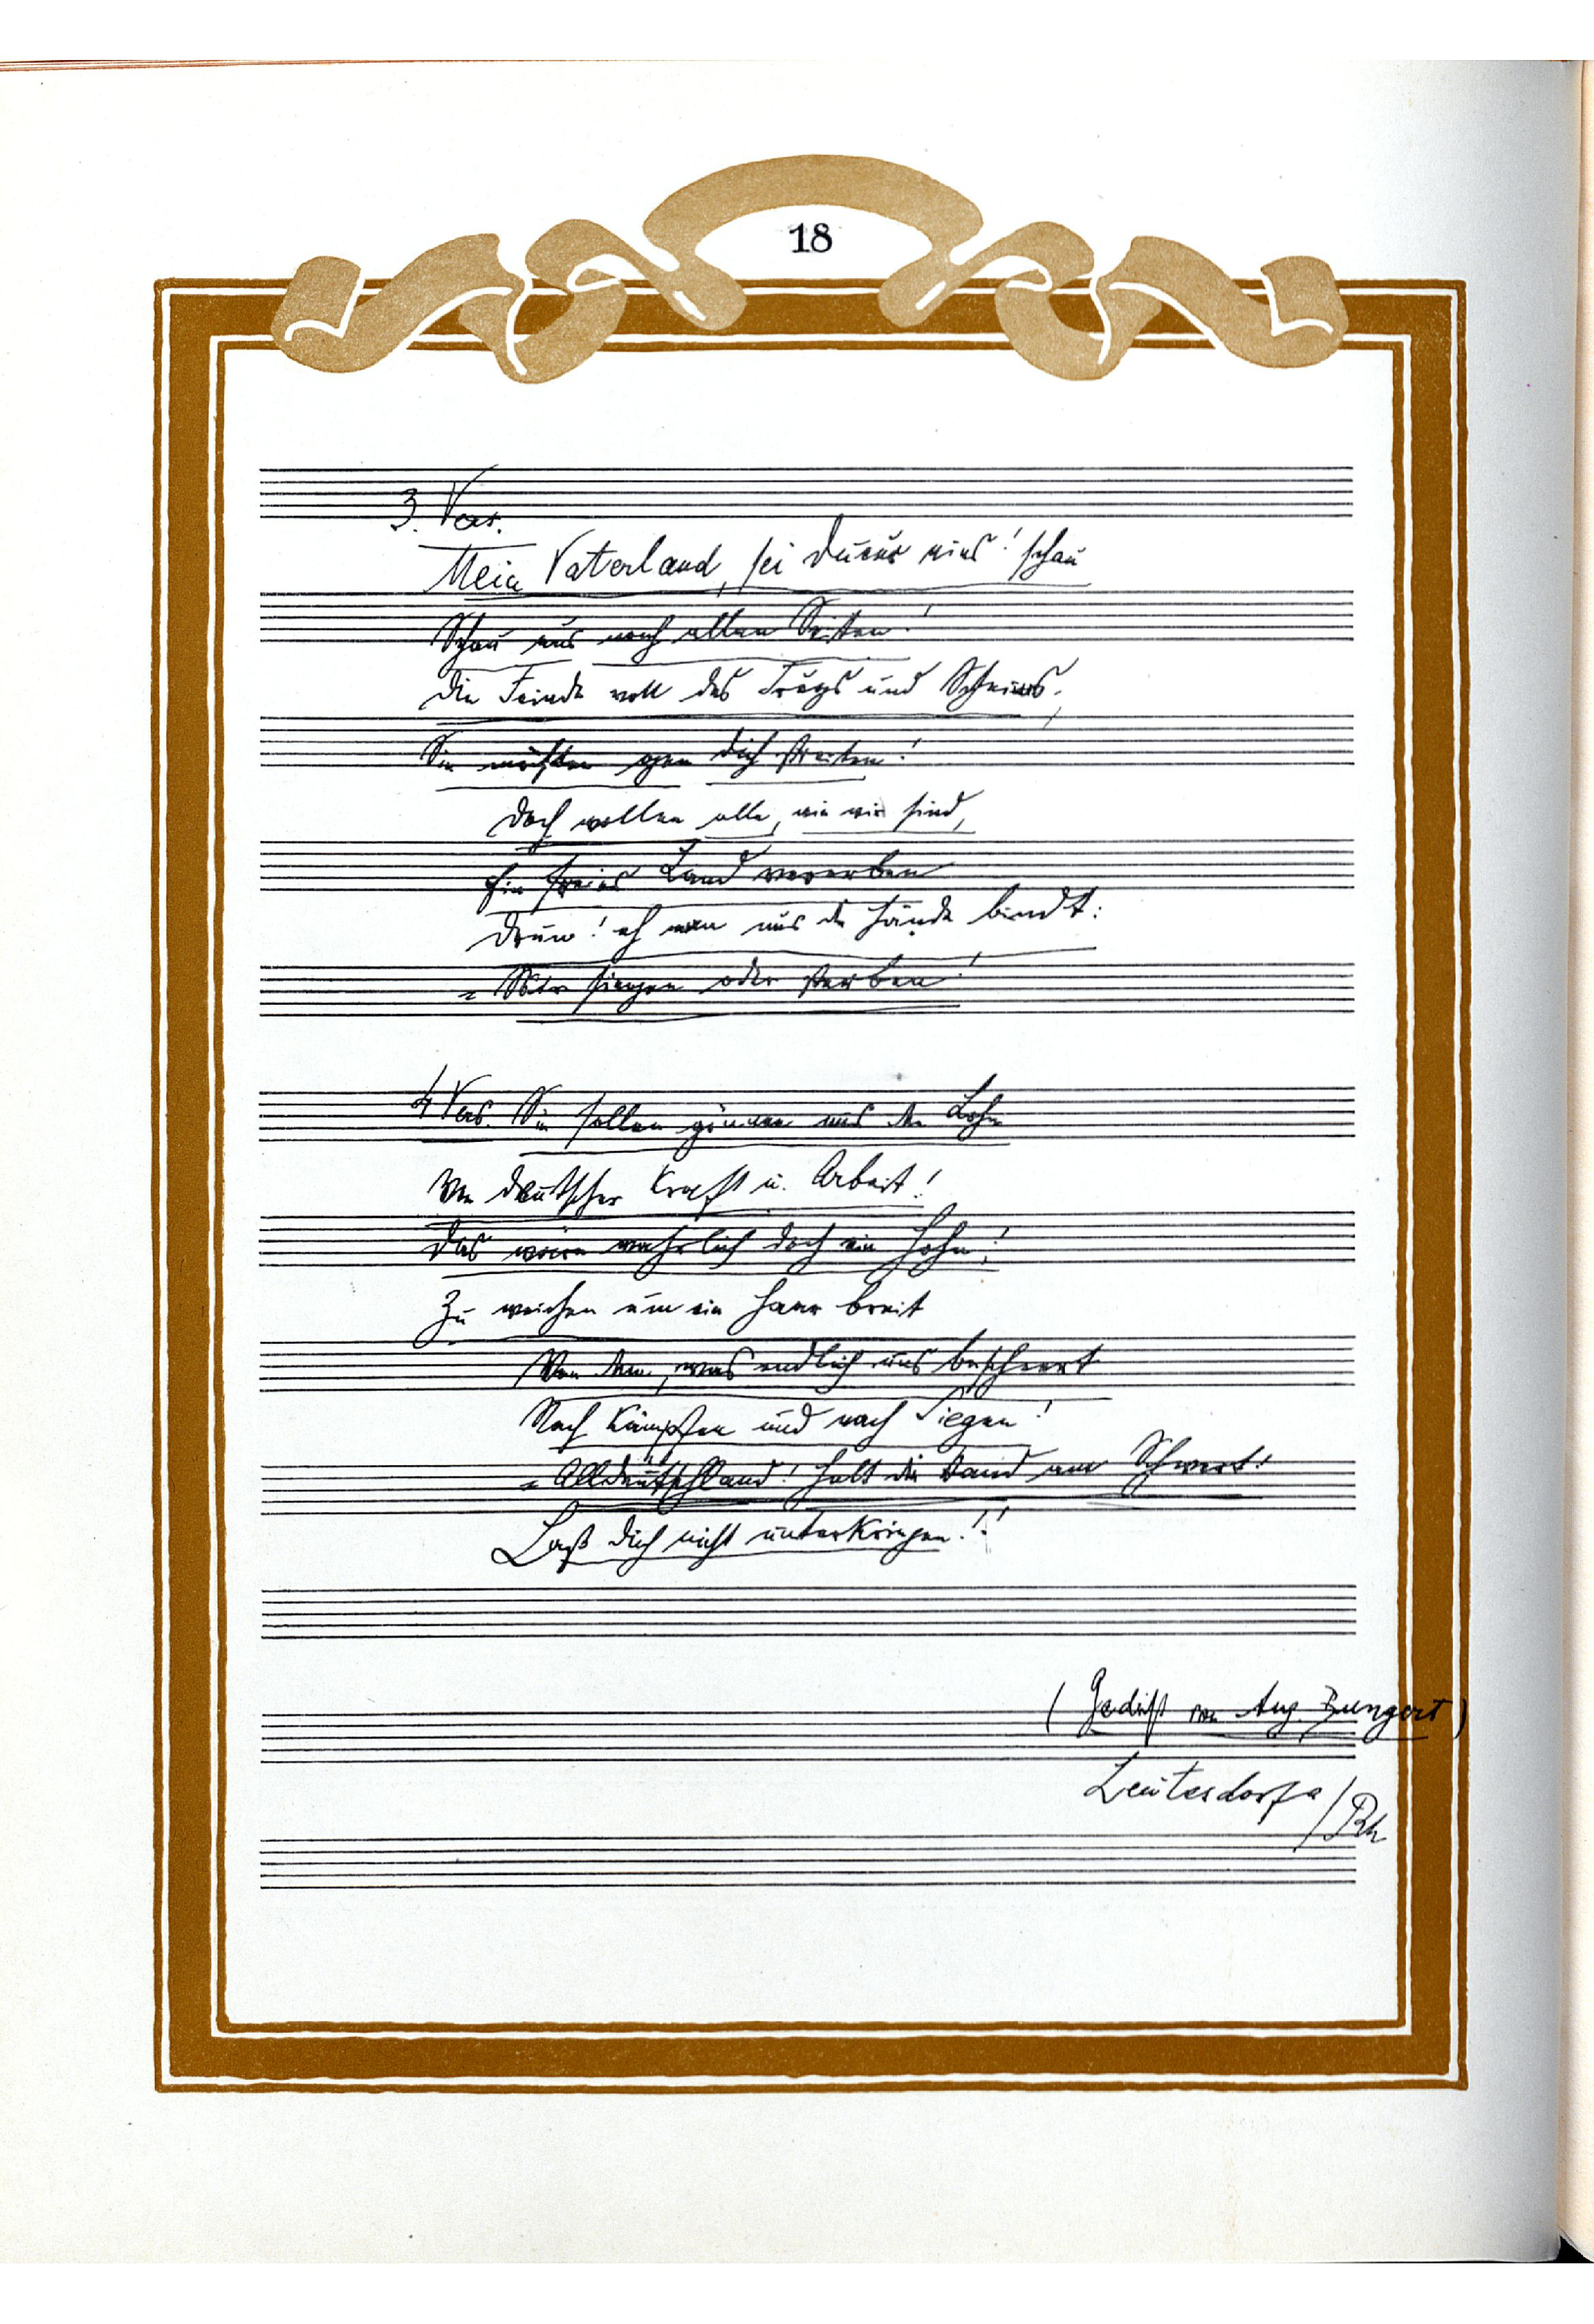 18
3. Vers.
Mein Vaterland, sei durum eins! schau
Schau aus nach allen Seiten!
Die Feinde voll des Trugs und Scheins,
Sie möchten gen dich streiten!
Doch wollen alle, wie wir sind,
Ein freies Land vererben
Drum! eh man uns die Hände bindt:
= Wir siegen oder sterben!
4 Vers. Sie sollen gönnen uns den Lohn
Von deutscher Kraft u. Arbeit!
Das wäre wahrlich doch ein Hohn!
Zu weichen um ein Haar breit
Von dem, was endlich uns bescheert
Nach Kämpfen und nach Siegen!
= Alldeutschland! Halt die Hand am Schwert!
Laß dich nicht unterkriegen!!
(Gedicht von Aug. Bungert)
Leutesdorf a/Rh